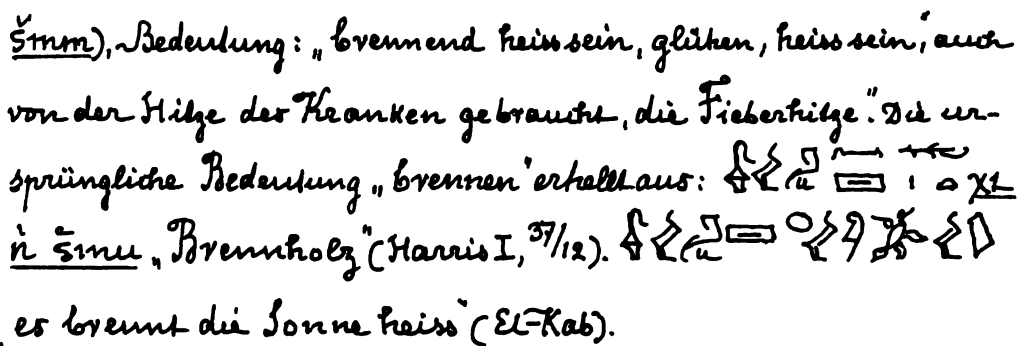 šmm), Bedeutung: „brennend heiss sein, glühen, heiss sein,“ auch
von der Hitze des Kranken gebraucht, die Fieberhitze“. Die ur-
sprüngliche Bedeutung „brennen“ erhellt aus:
n šmu „Brennholz“ (Harris I, 37/12).
es brennt die Sonne heiss“ (El-Kab).